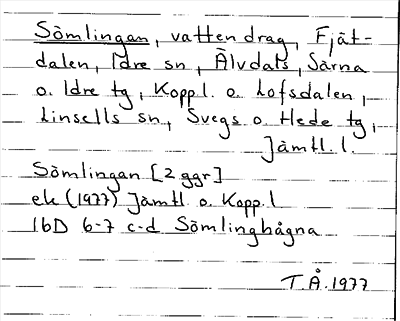 Sömlingan, vattendrag, Fjät-
dalen, Idre sn, Älvdals, Särna
o. Idre tg, Koppl. o. Lofsdalen,
Linsells sn, Svegs o. Hede tg,
Jämtl. l.
Sömlingan [2 ggr]
ek (1977) Jämtl o. Kopp. l
16D 6-7 c-d Sömlinghågna
T.Å. 1977